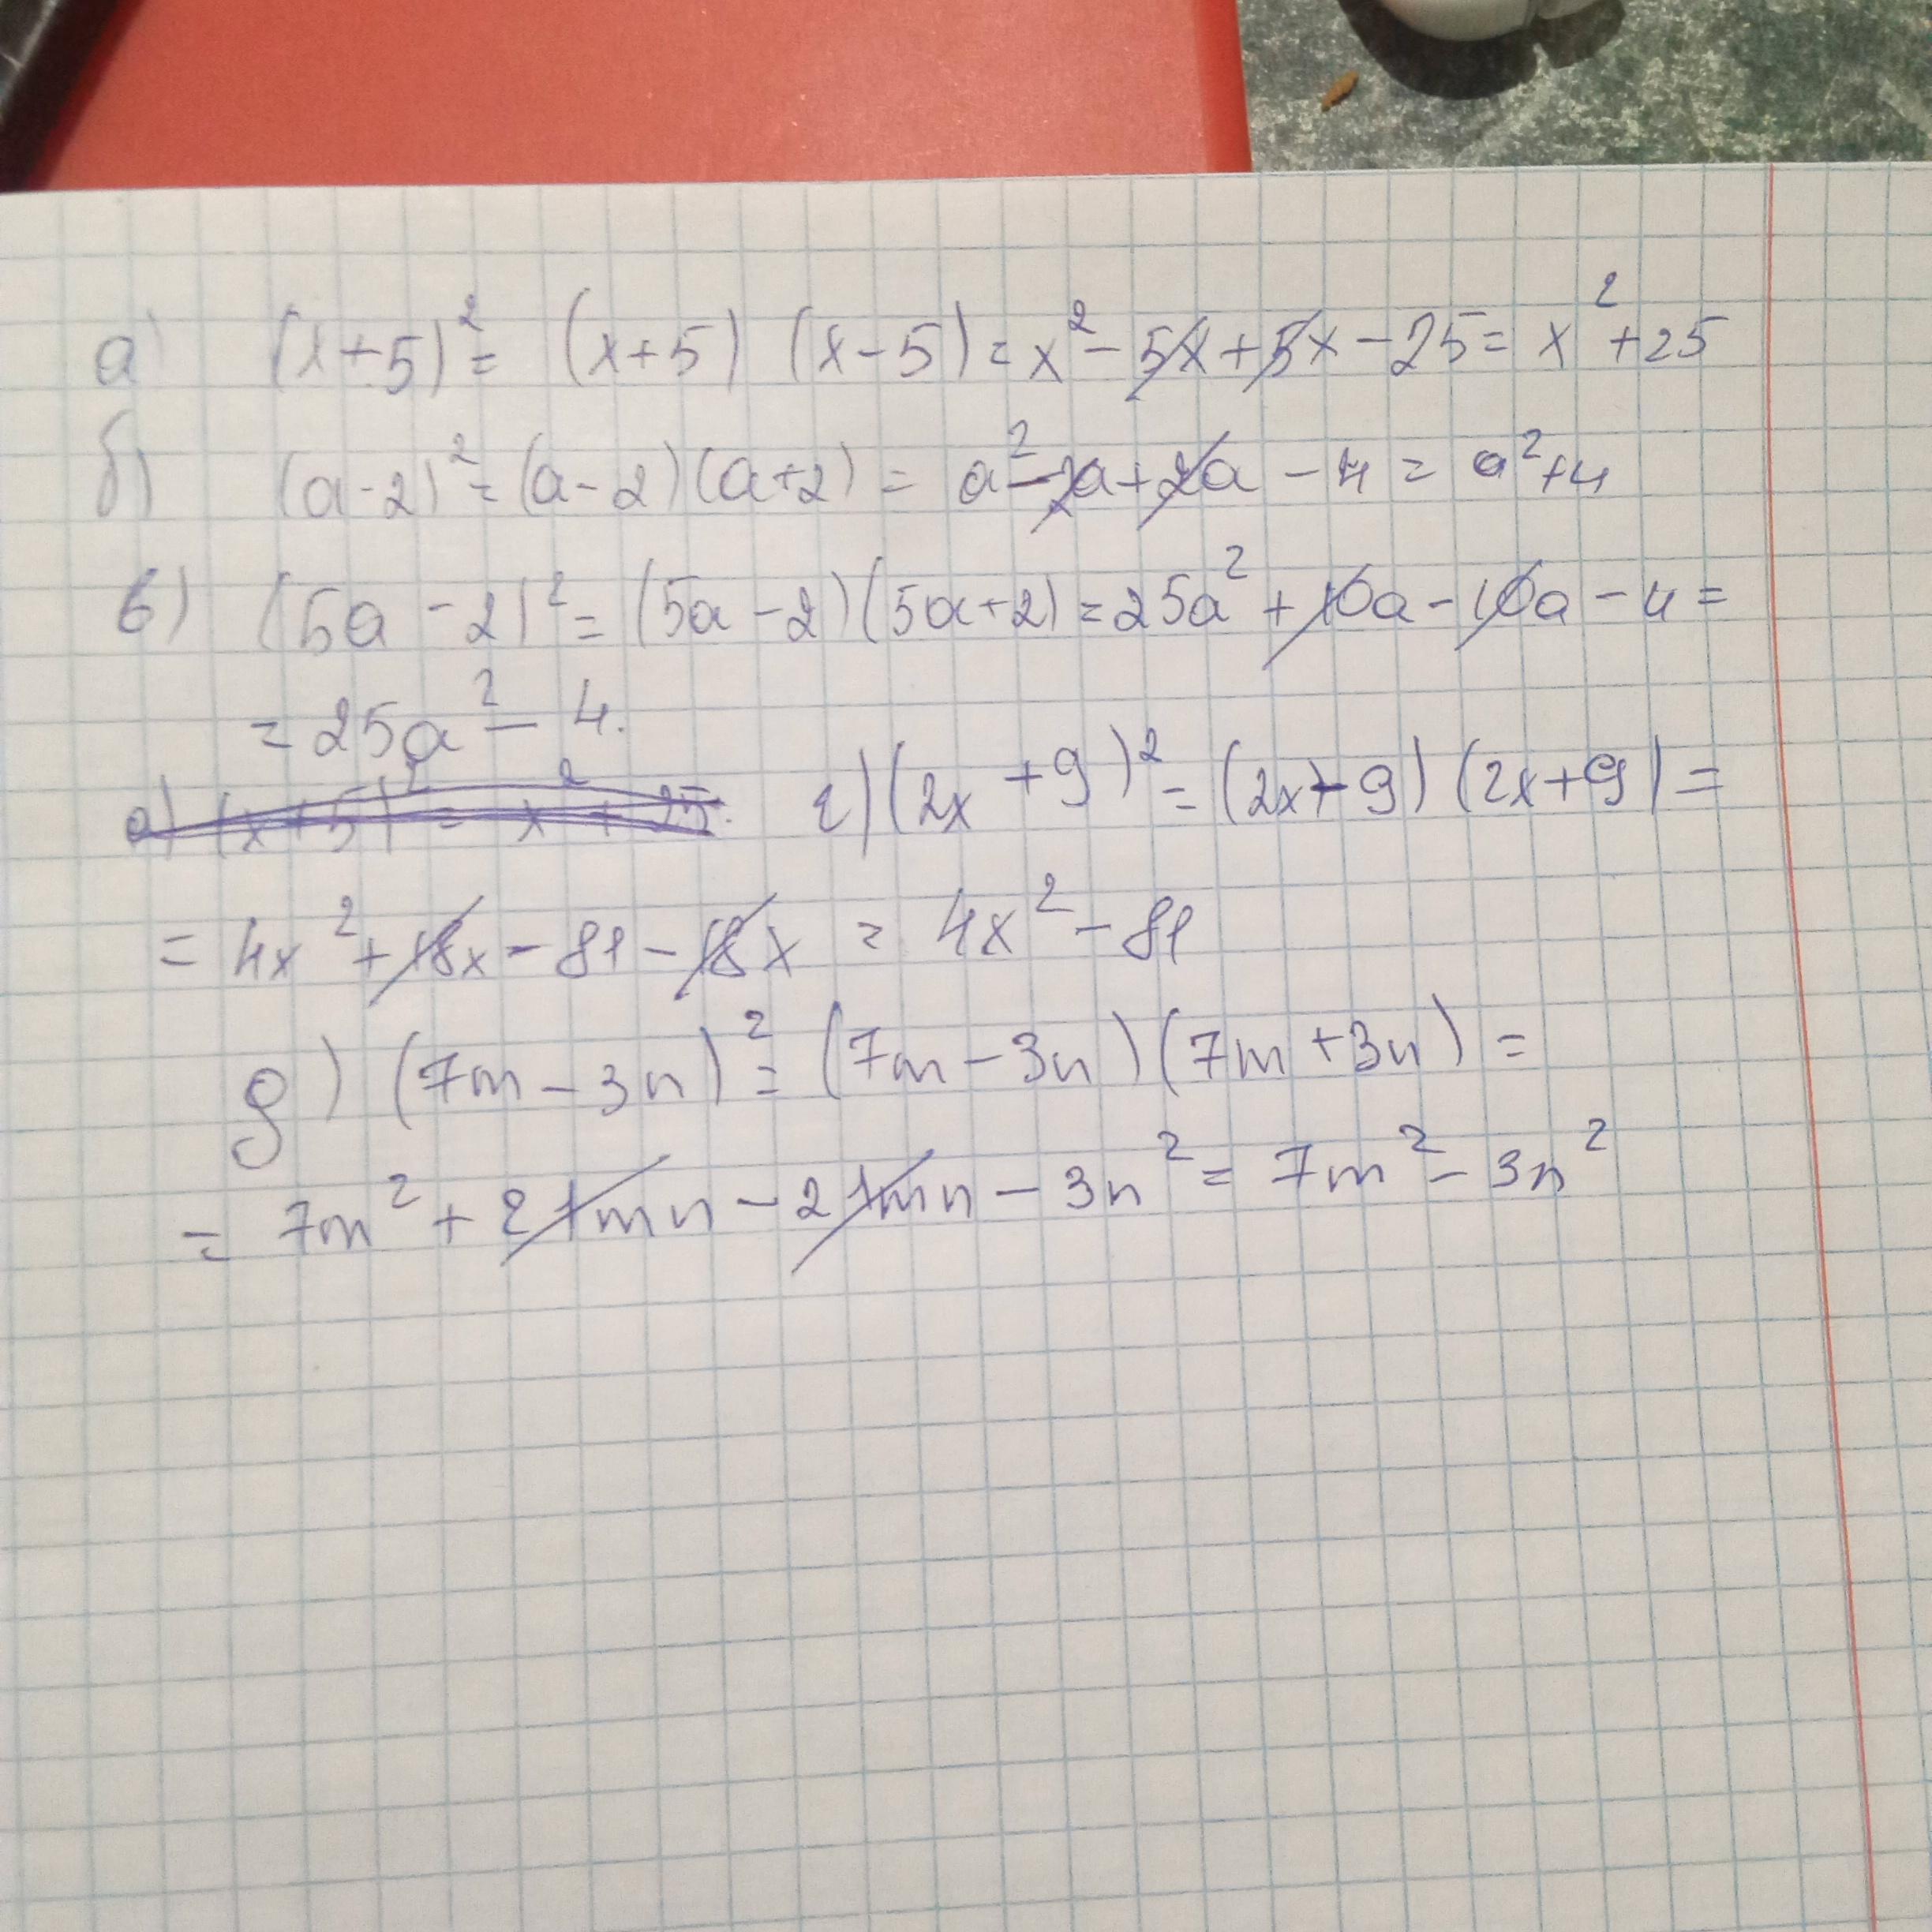 а) (x+5)² = (x+5) (x-5) = x² - 5x + 5x - 25 = x² + 25
б) (a-2)² = (a-2)(a+2) = a² - 2a + 2a - 4 = a² + 4
в) (5a - 2)² = (5a - 2)(5a + 2) = 25a² + 10a - 10a - 4 =
= 25a² - 4.
а) (x+5)² = x² + 25. г) (2x + 9)² = (2x - 9) (2x + 9) =
= 4x² + 18x - 81 - 18x = 4x² - 81
д) (7m - 3n)² = (7m - 3n)(7m + 3n) =
= 7m² + 21mn - 21mn - 3n² = 7m² - 3n²